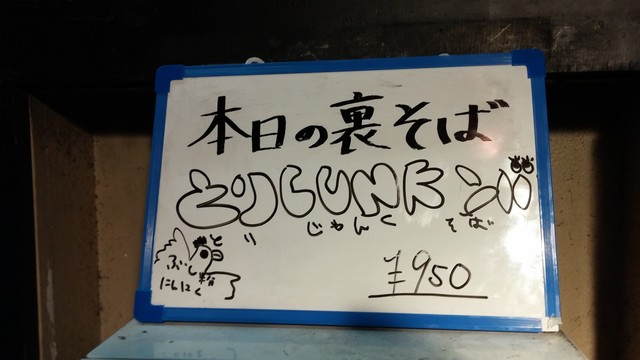 本日の裏そば
とりJUNKソバ
とり じゃんく そば
ぶし
にんにく
¥950